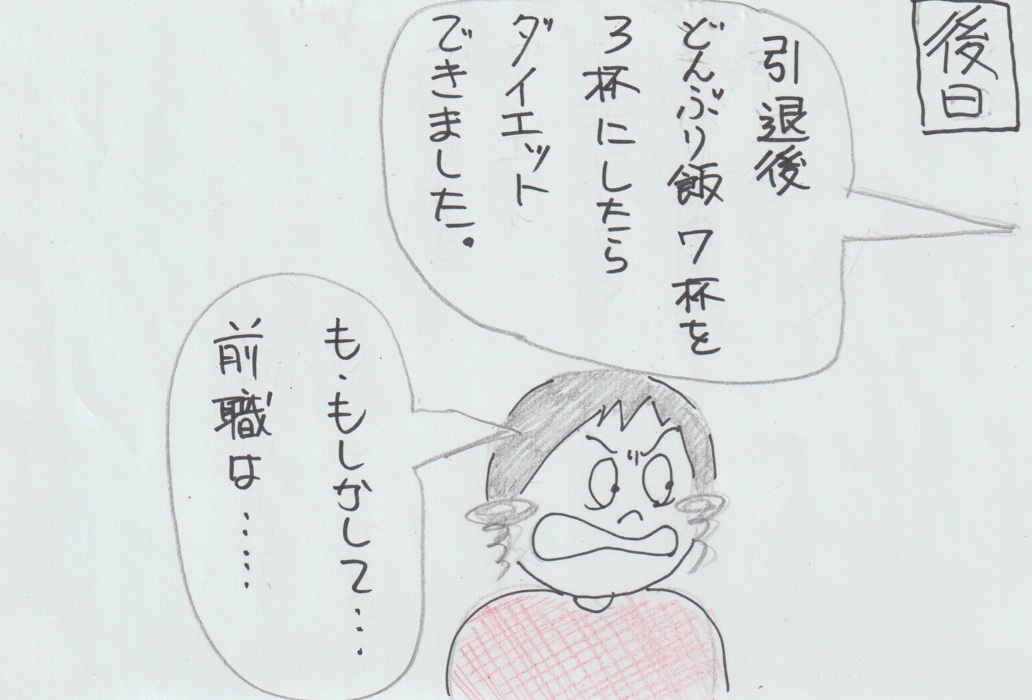 後日
引退後
どんぶり飯7杯を
3杯にしたら
ダイエット
できました。
も、もしかして…
前職は……